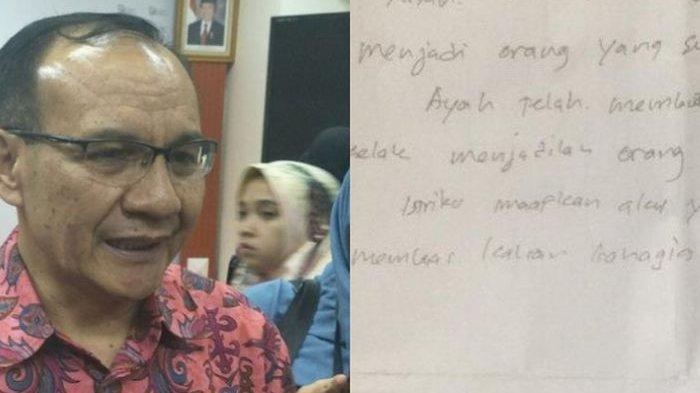 menjadi orang yang
Ayah telah membu
kelak menjadilah orang
Istriku maafkan aku
membuat kalian bahagia